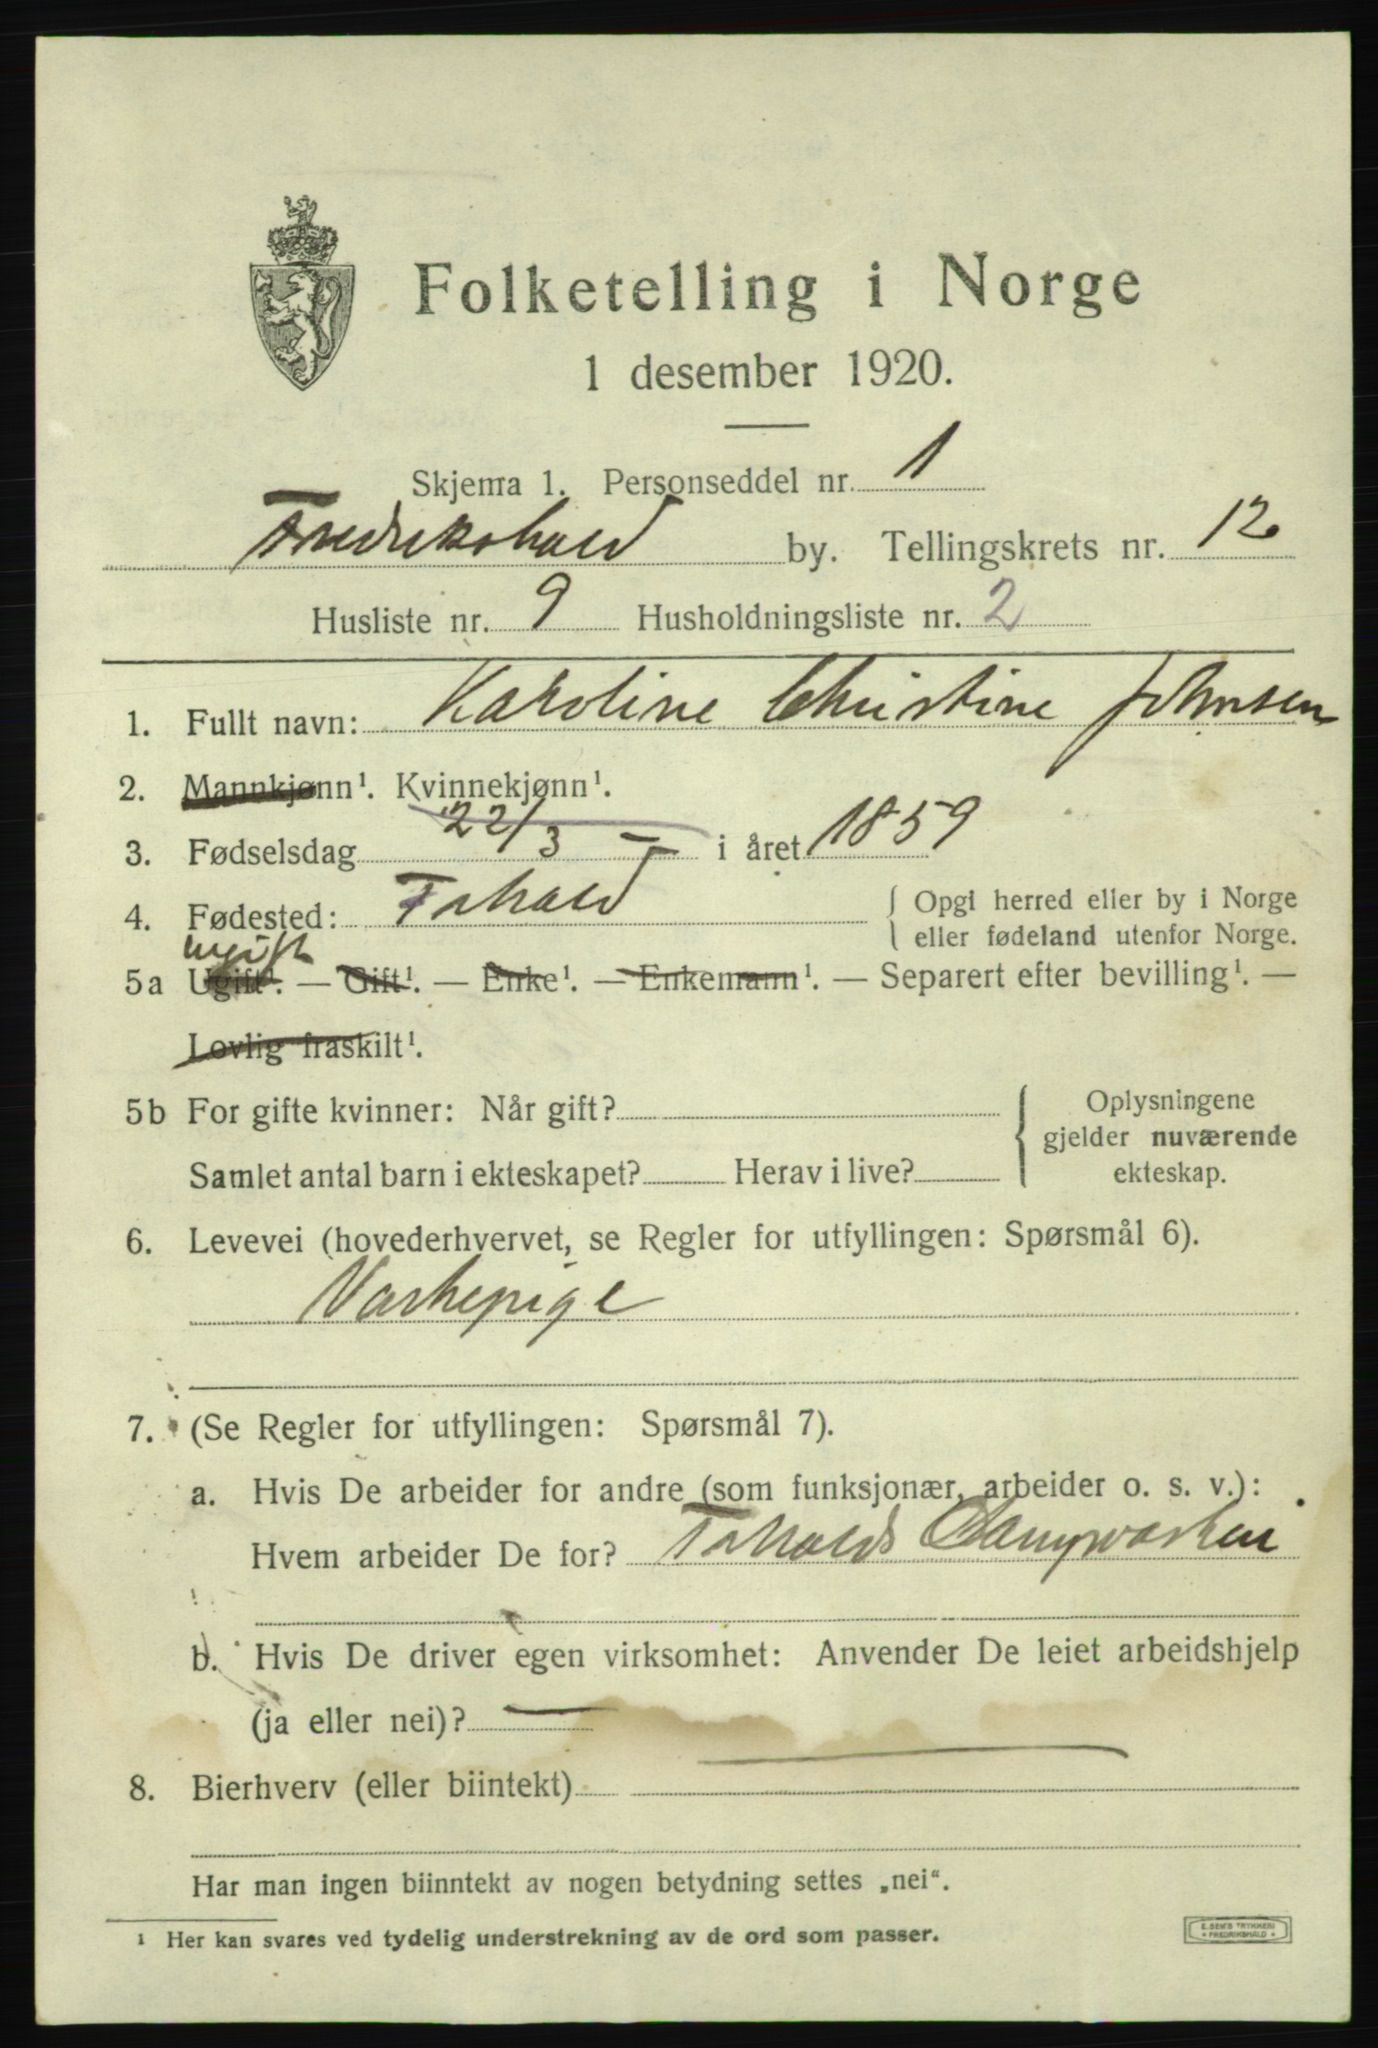 Folketelling i Norge
1 desember 1920.
Skjema 1. Personseddel nr. 1
Fredrikshald by. Tellingskrets nr. 12
Husliste nr. 9 Husholdningsliste nr. 2
1. Fullt navn: Karoline Christine Johnsen
2. Mannkjønn¹. Kvinnekjønn¹.
3. Fødselsdag 22/3 — i året 1859
4. Fødested: Fr hald { Opgi herred eller by i Norge
eller fødeland utenfor Norge.
ugift
5a Ugift¹. — Gift¹. — Enke¹. — Enkemann¹. — Separert efter bevilling¹. —
Lovlig fraskilt¹.
5b For gifte kvinner: Når gift? { Oplysningene
gjelder nuværende
Samlet antal barn i ekteskapet? Herav i live? ekteskap.
6. Levevei (hovederhvervet, se Regler for utfyllingen: Spørsmål 6).
Vaskepige
7. (Se Regler for utfyllingen: Spørsmål 7).
a. Hvis De arbeider for andre (som funksjonær, arbeider o. s. v.):
Hvem arbeider De for? Fr halds Dampvaskeri
b. Hvis De driver egen virksomhet: Anvender De leiet arbeidshjelp
(ja eller nei)? —
8. Bierhverv (eller biintekt) —
Har man ingen biinntekt av nogen betydning settes „nei“.
¹ Her kan svares ved tydelig understrekning av de ord som passer.
E. SEM'S TRYKKERI
• FREDRIKSHALD •